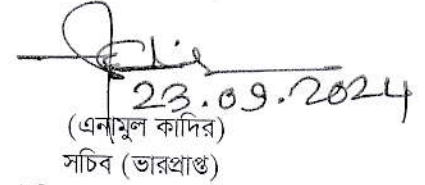 23.09.2024
(এনামুল কাদির)
সচিব (ভারপ্রাপ্ত)